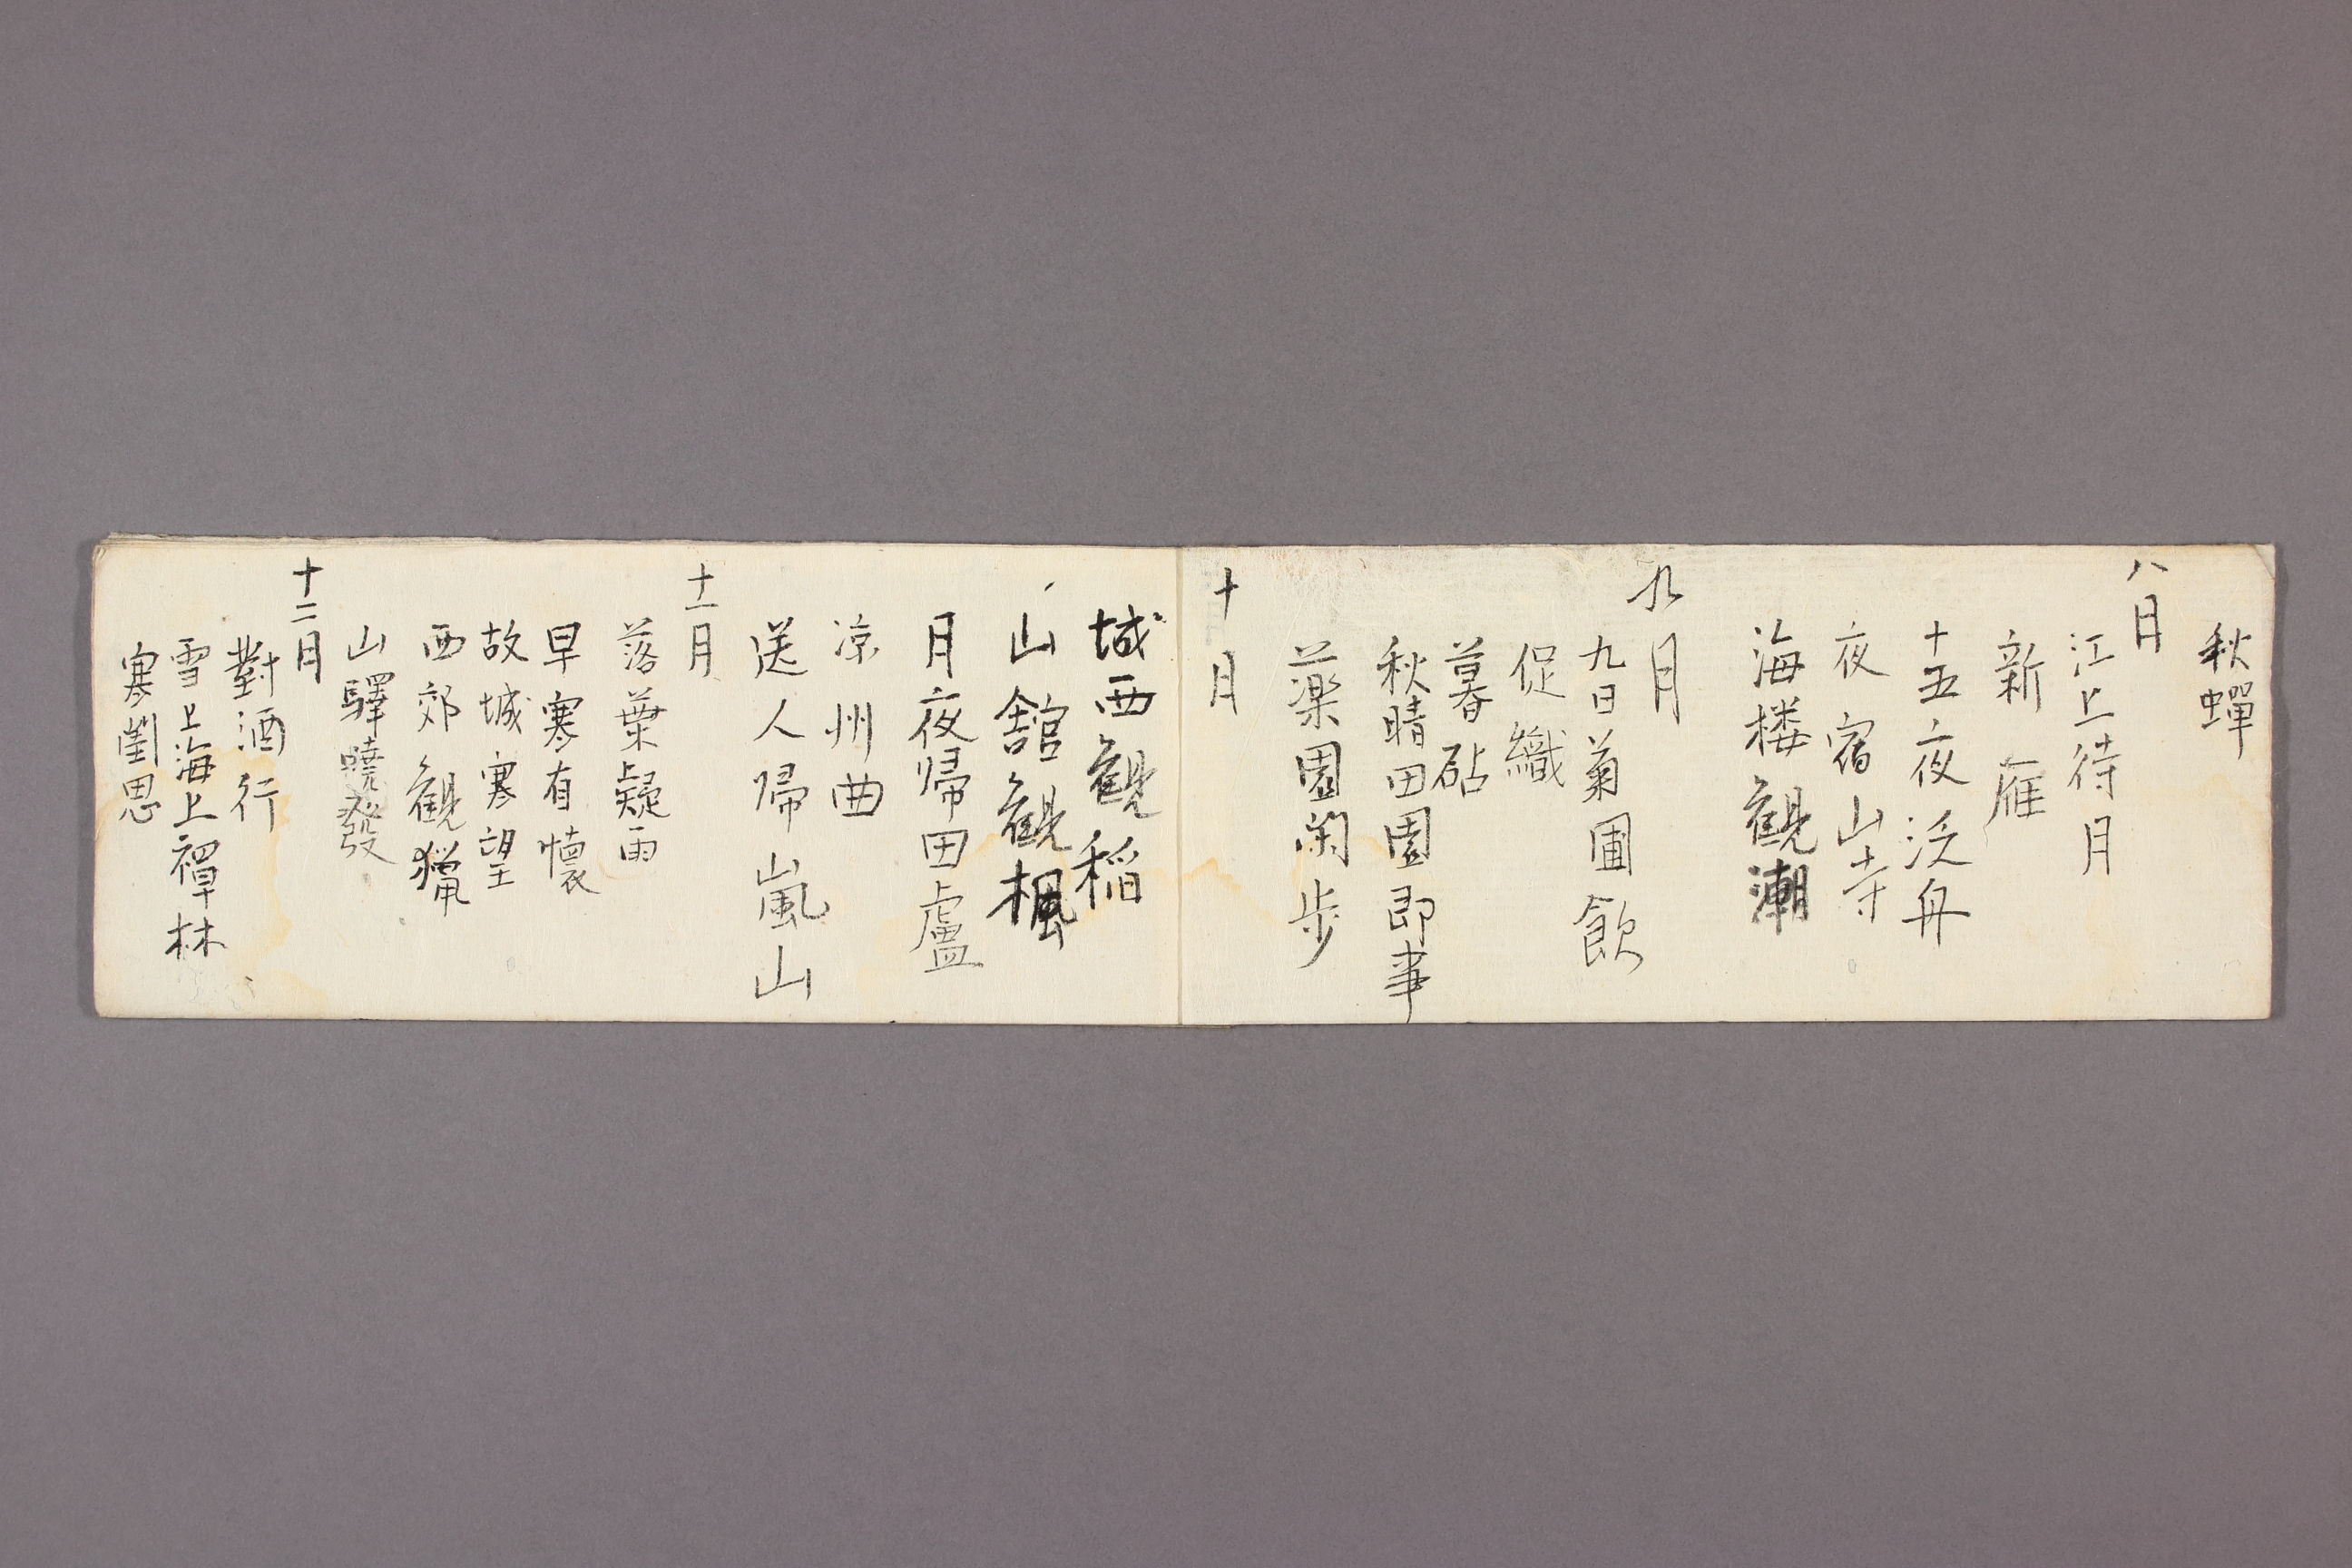 秋蟬
八月
江上待月
新雁
十五夜泛舟
夜宿山寺
海楼観潮
九月
九日菊圃飲
促織
暮砧
秋晴田園即事
薬園閑歩
十月
城西観稲
山舘観楓
月夜帰田盧
凉州曲
送人帰嵐山
十一月
落葉疑雨
早寒有懐
故城寒望
西郊観猟
山驛曉發
十二月
對酒行
雪上海上禪林
寒閨思